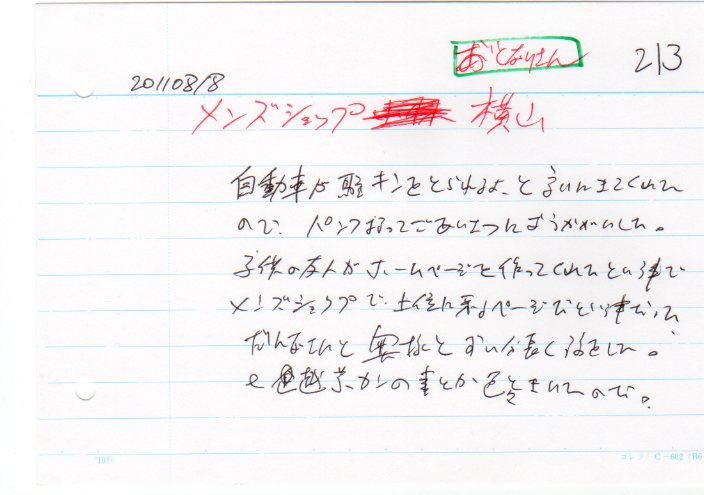 おとなりさん
213
20110818
メンズショップ 横山
自動車は駐キンをとられるよ、と言いにきてくれた
ので、パンフもってごあいさつにおうかがいした。
子供の友人がホームページを作ってくれたという事で
メンズショップで、上位に来るページだという事だった
だんなさんと奥様とずい分長く話をした。
の事とか色々きいたので。
コレクト C-602 (B6